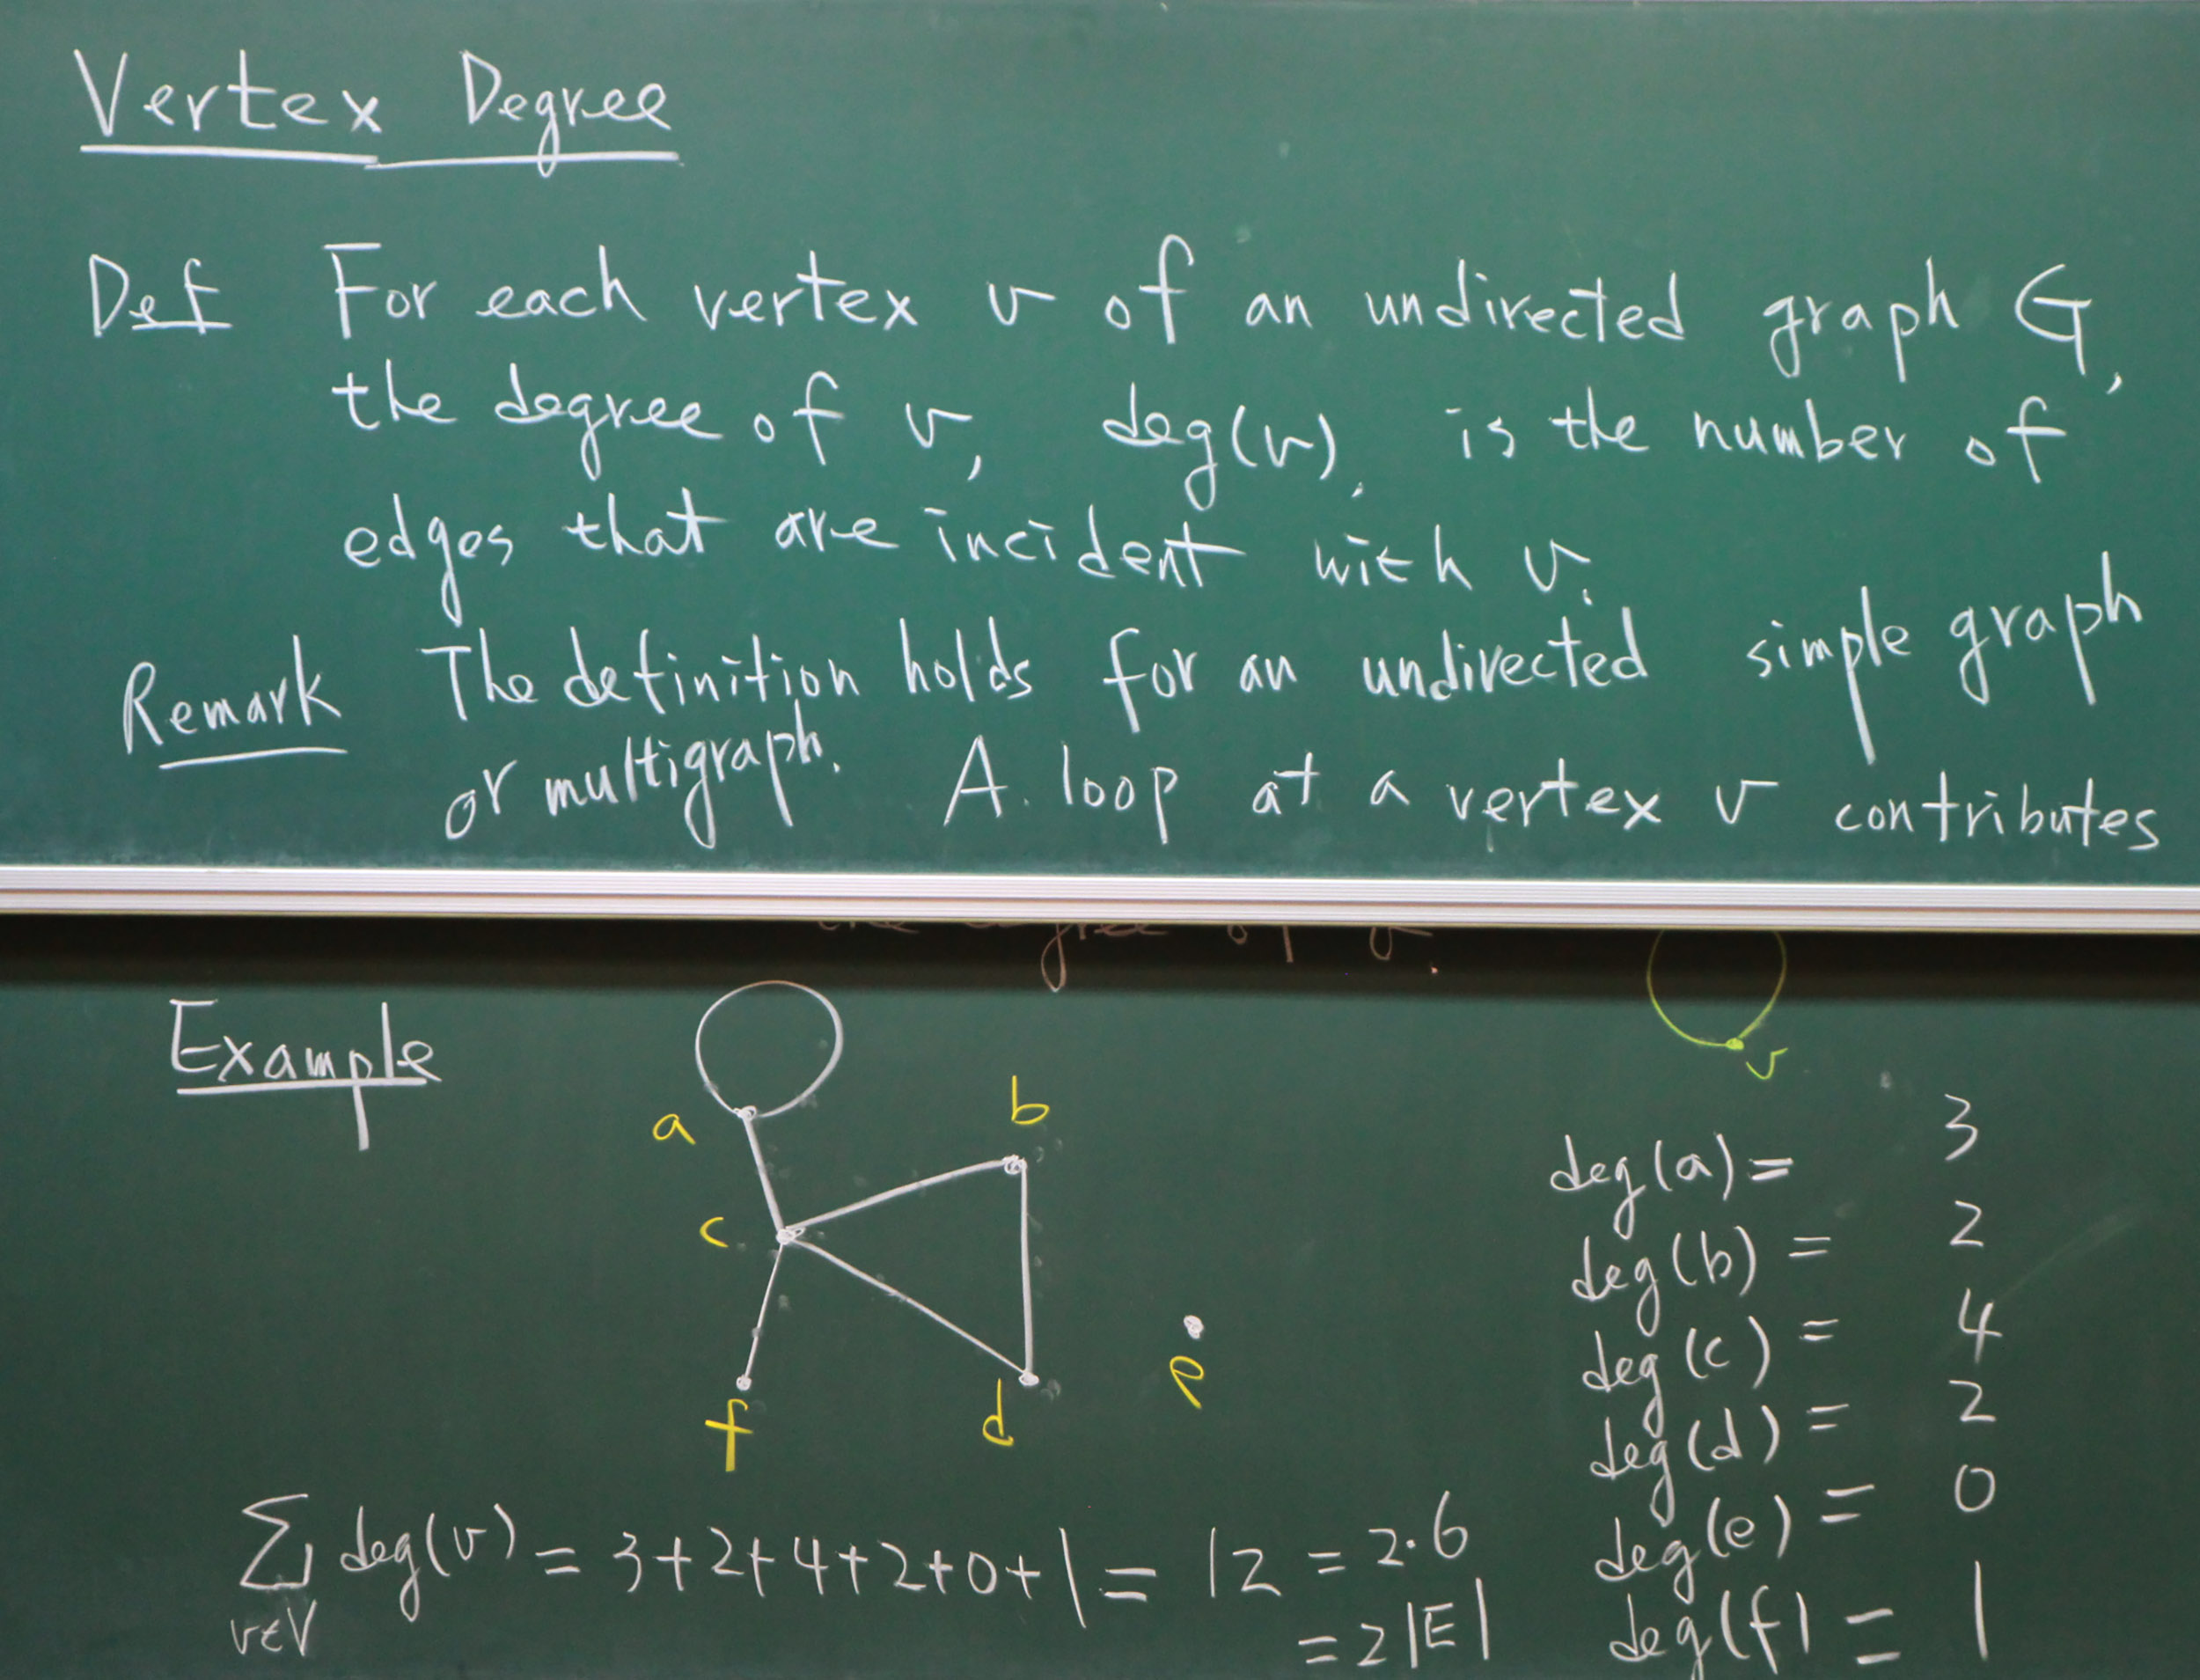 Vertex Degree
Def For each vertex v of an undirected graph G,
the degree of v, deg(v), is the number of
edges that are incident with v.
Remark The definition holds for an undirected simple graph
or multigraph. A loop at a vertex v contributes
degree of v.
Example
v
a
b
c
f
d
e
deg(a) = 3
deg(b) = 2
deg(c) = 4
deg(d) = 2
deg(e) = 0
deg(f) = 1
∑ deg(v) = 3+2+4+2+0+1 = 12 = 2·6
v∈V
= 2|E|